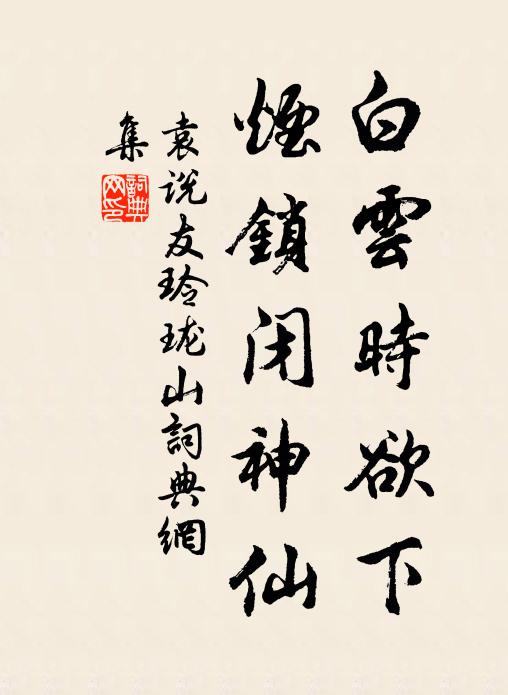 白雲時欲下
煙鎖閉神仙
袁说友玲珑山詞典網
集
詞典網印